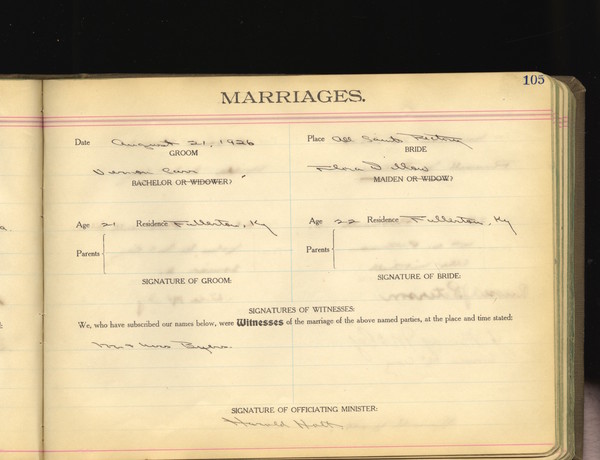 105
MARRIAGES.
Date August 21, 1926 Place All Saints Rectory
GROOM BRIDE
Vernon Carr Flora D
BACHELOR OR WIDOWER? MAIDEN OR WIDOW?
Age 21 Residence Fullerton, Ky Age 22 Residence Fullerton, Ky
Parents Parents
SIGNATURE OF GROOM: SIGNATURE OF BRIDE:
SIGNATURES OF WITNESSES:
We, who have subscribed our names below, were Witnesses of the marriage of the above named parties, at the place and time stated:
Mr & Mrs Byers.
SIGNATURE OF OFFICIATING MINISTER:
Harold Holt